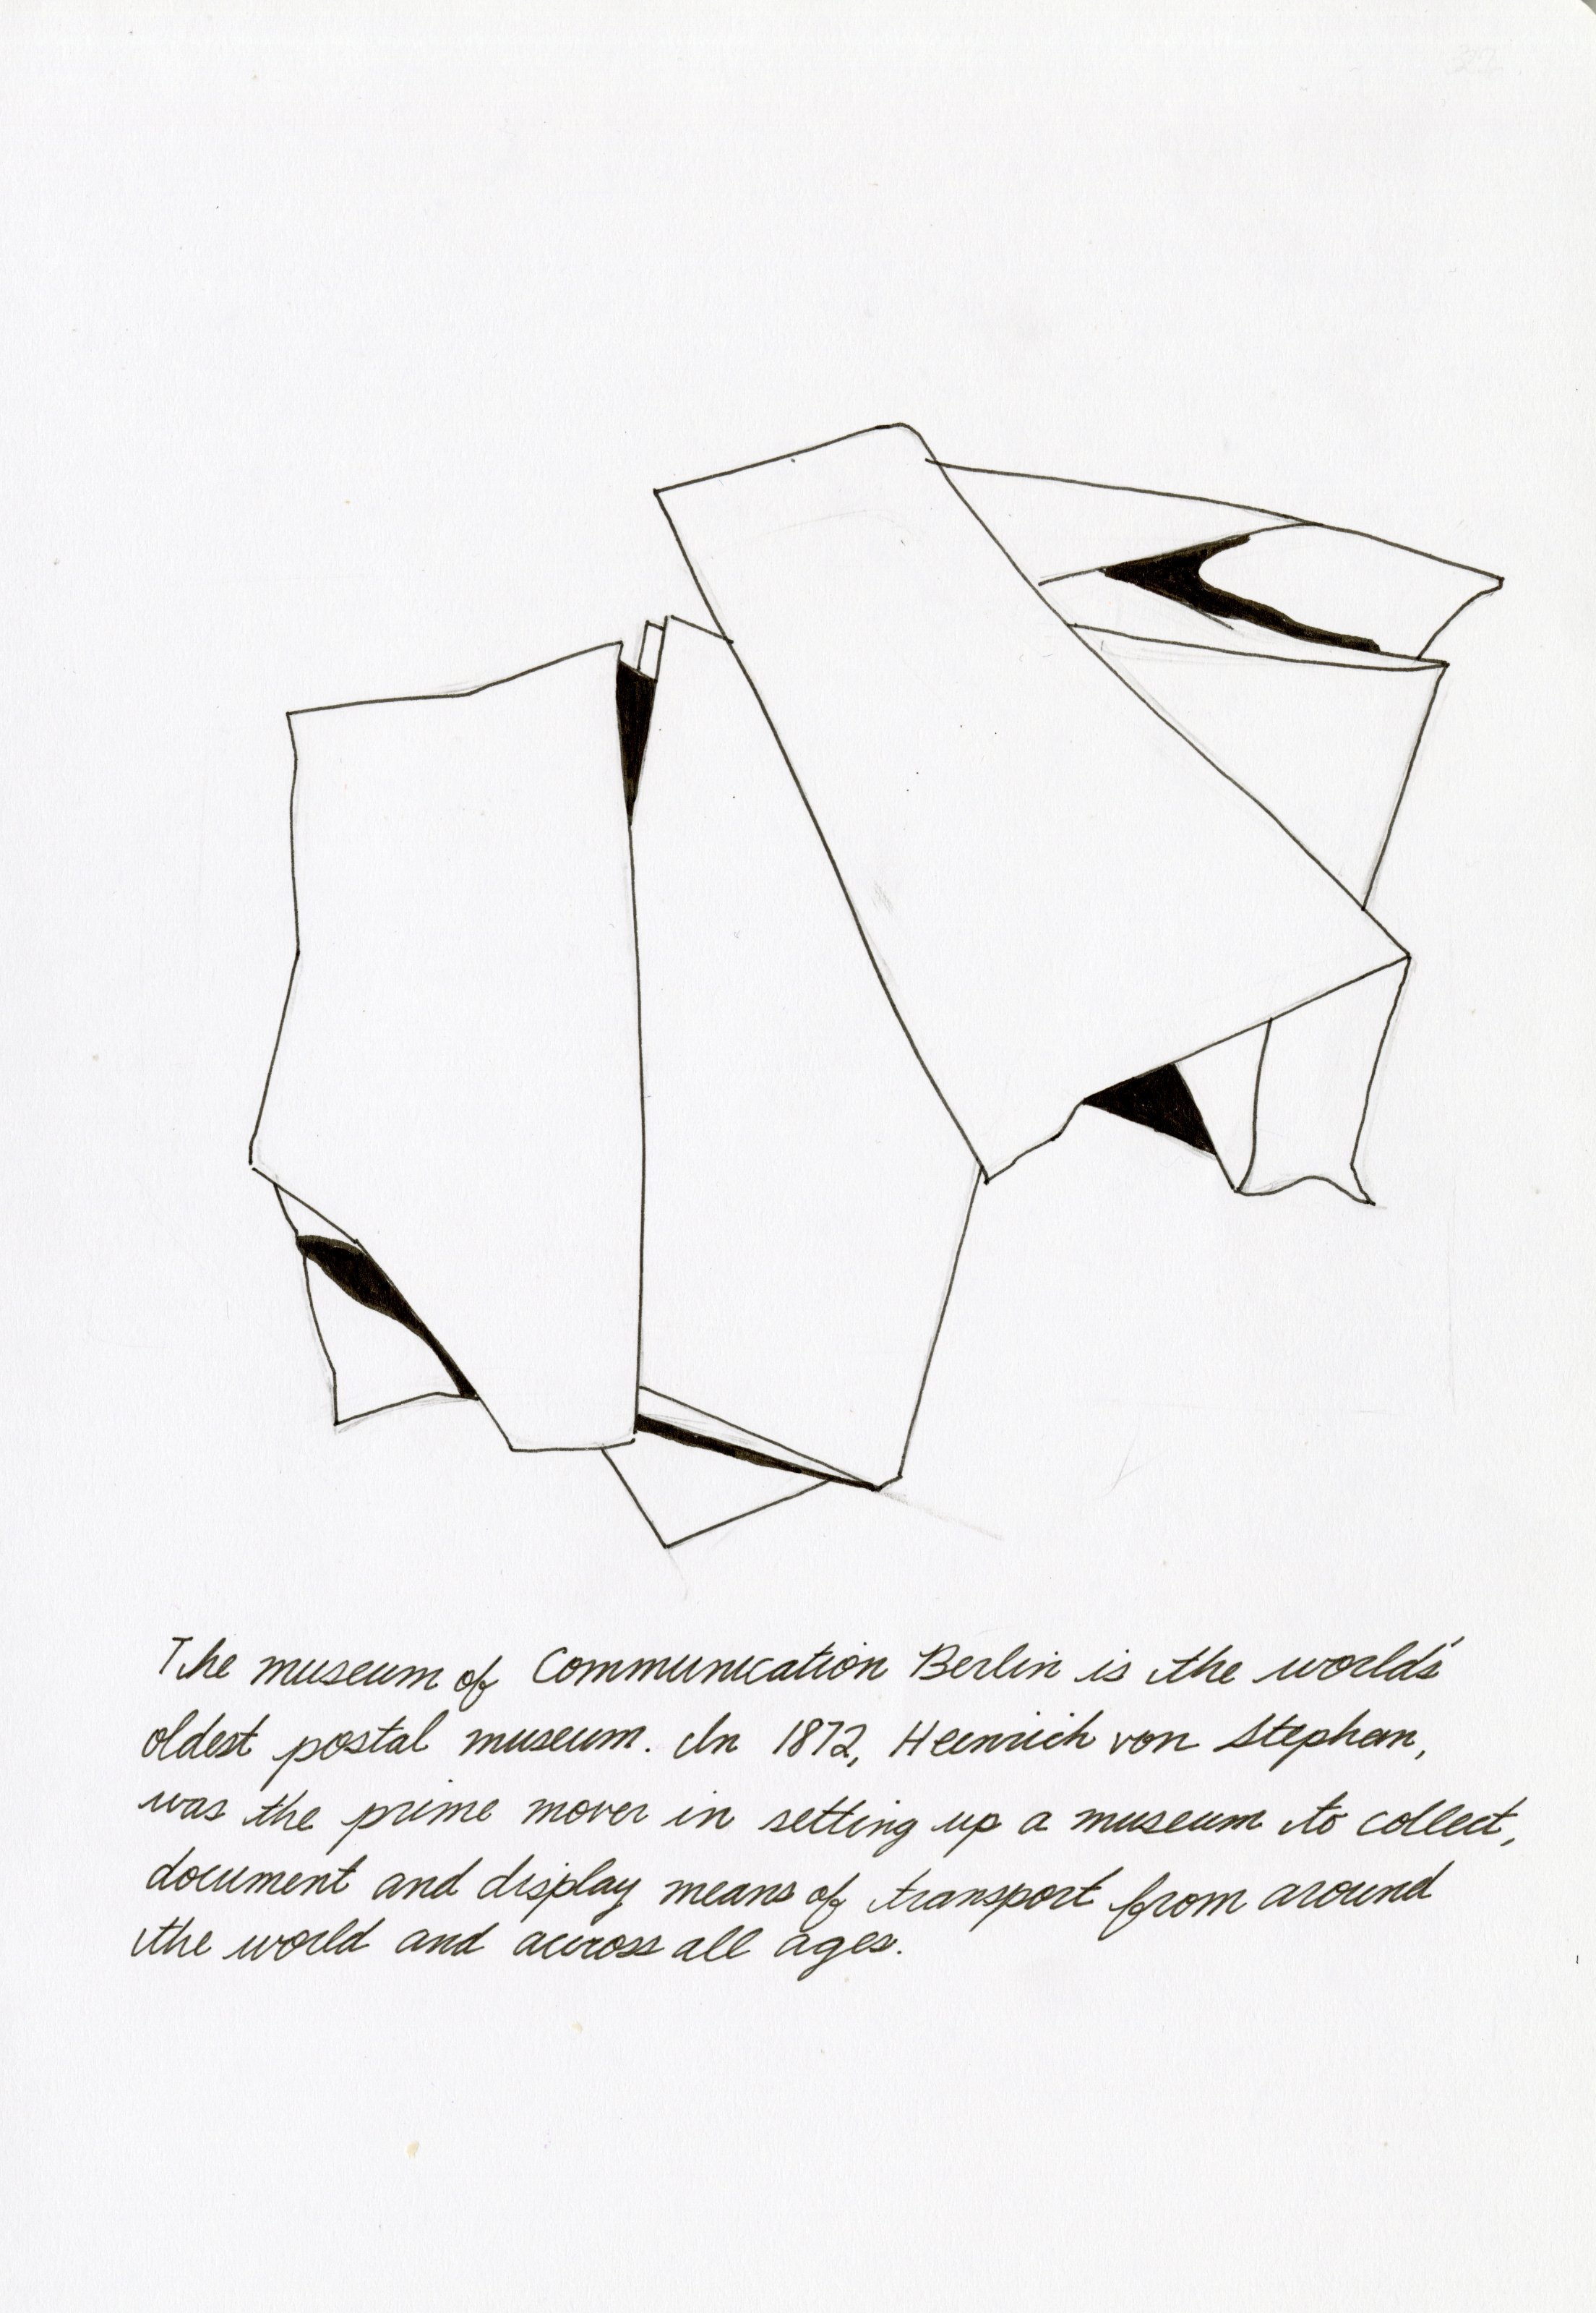 The museum of Communication Berlin is the world's
oldest postal museum. In 1872, Heinrich von Stephan,
was the prime mover in setting up a museum to collect,
document and display means of transport from around
the world and across all ages.